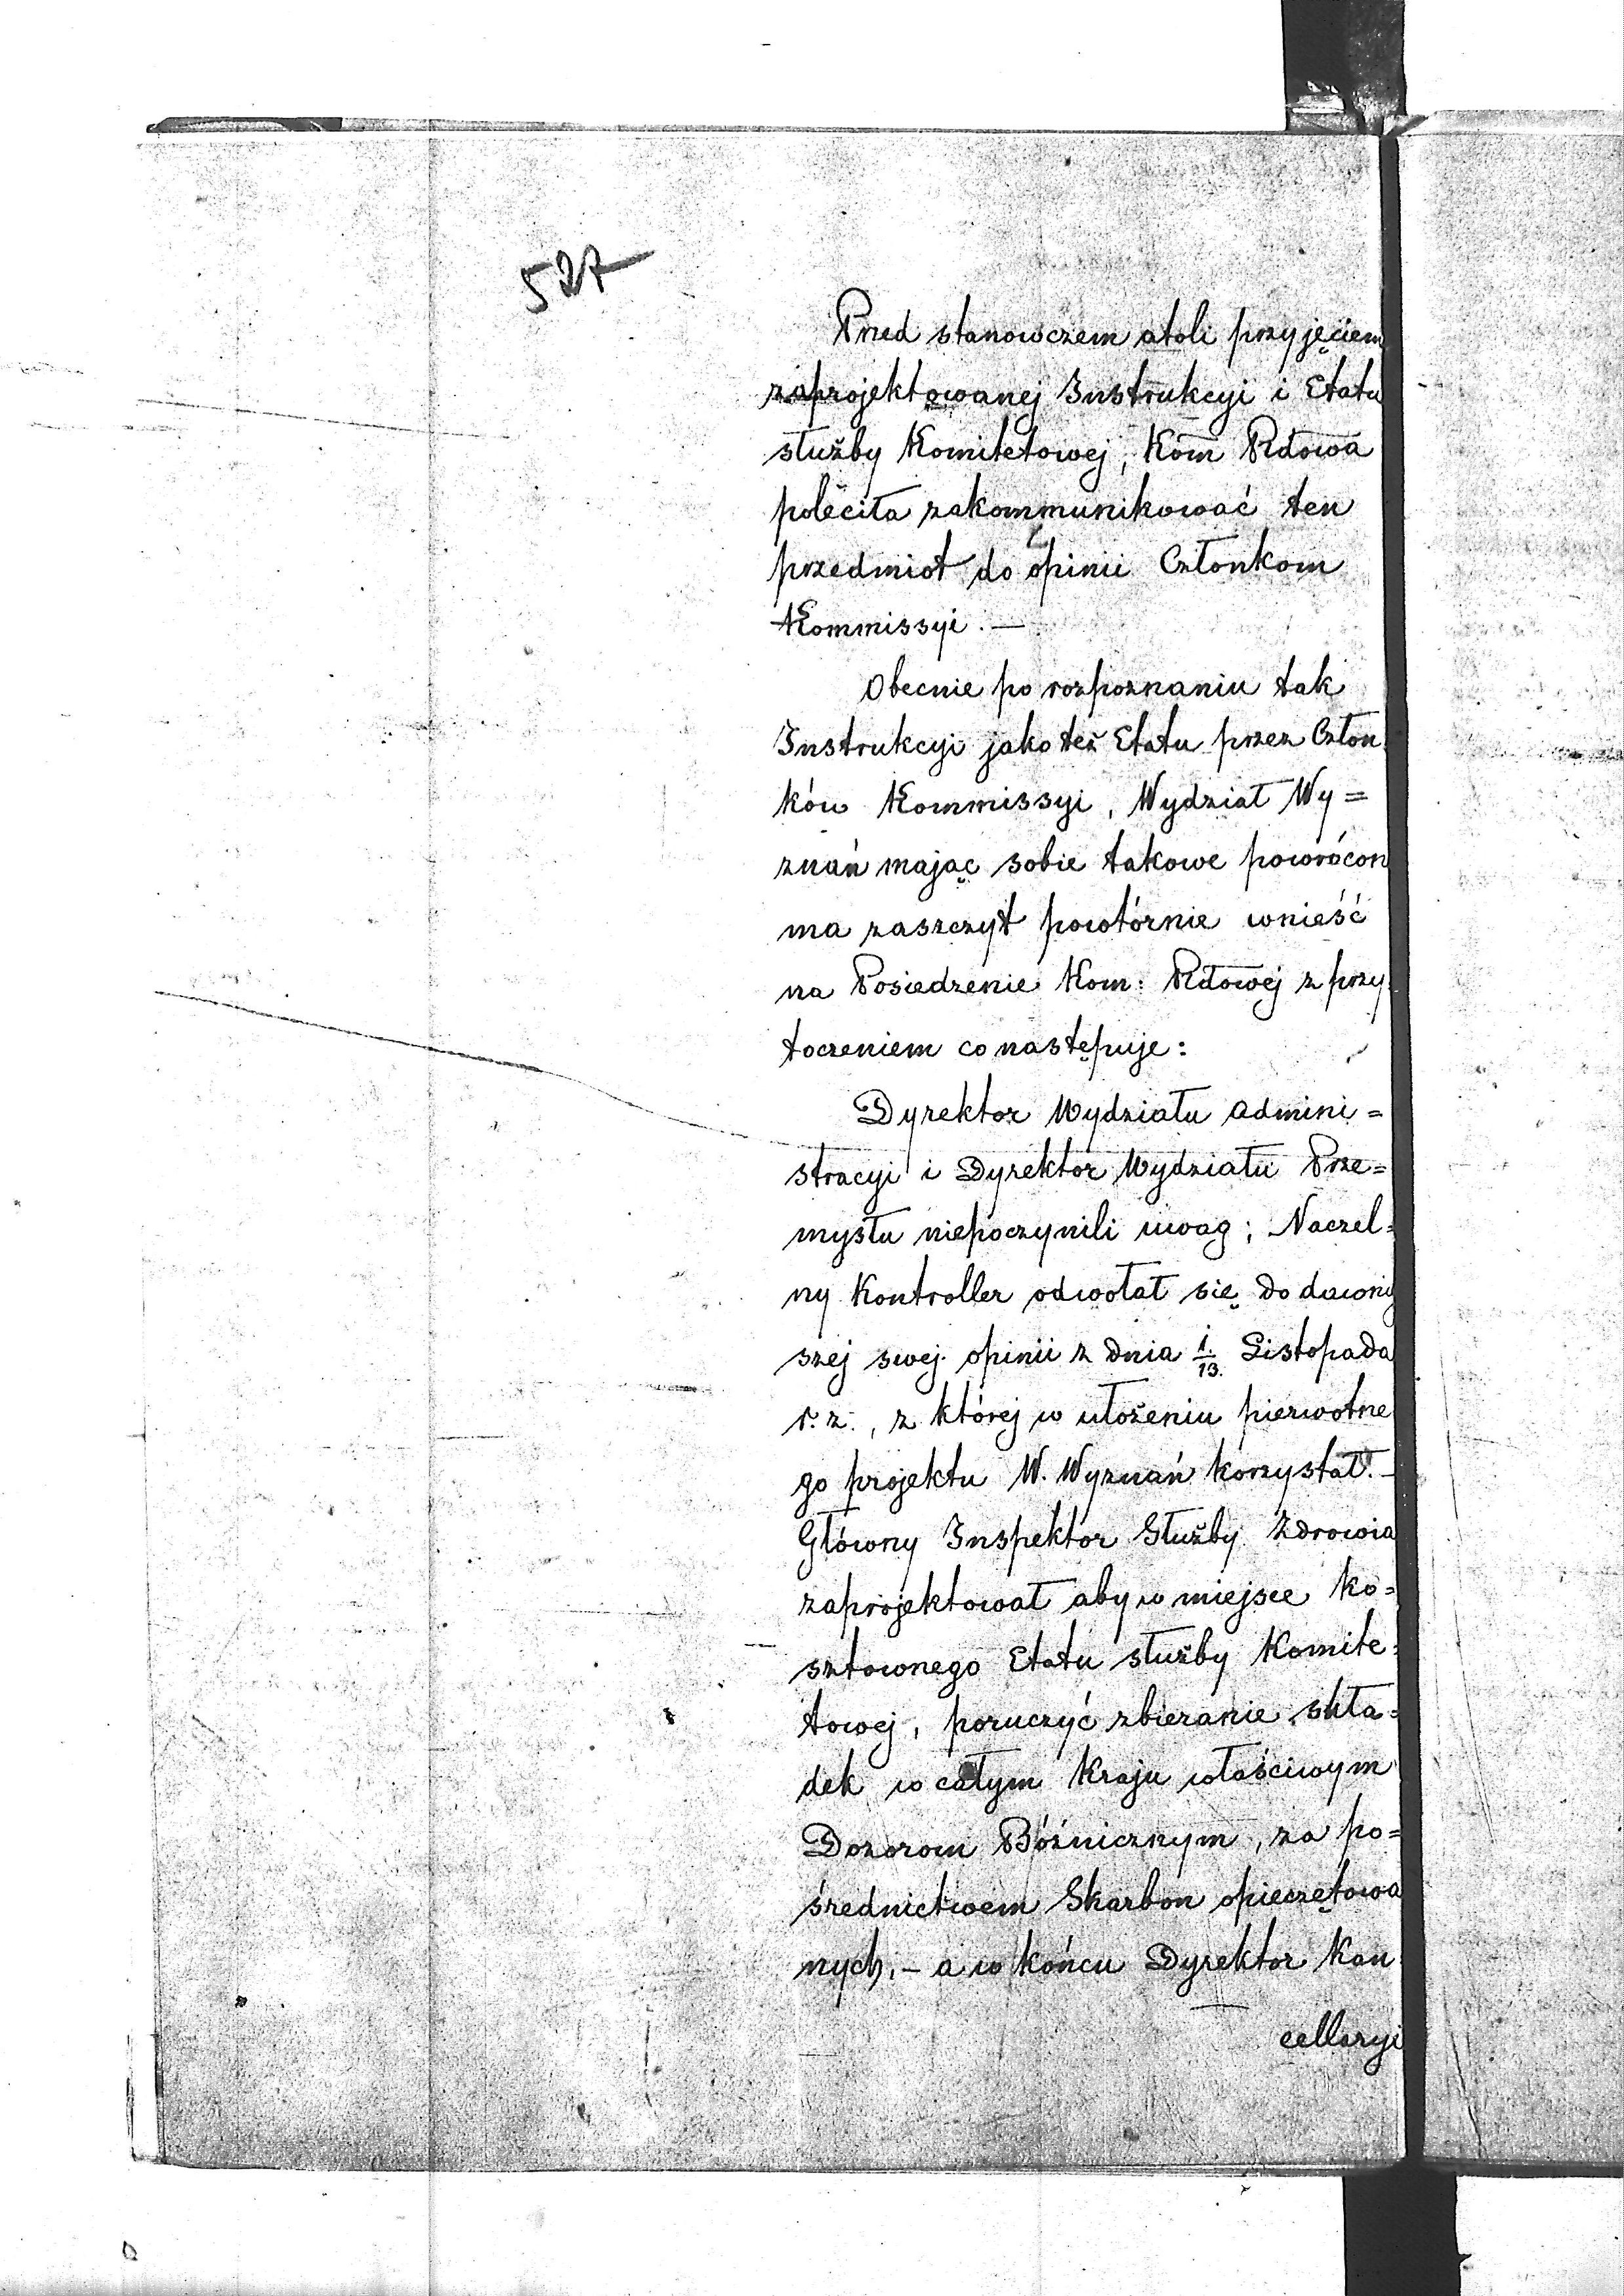 527
Przed stanowczem atoli przyjęciem
zaprojektowanej Instrukcyi i Etatu
służby Komitetowej, Kom Rdowa
poleciła zakommunikować ten
przedmiot do opinii Członkom
Kommissyi. —
Obecnie po rozpoznaniu tak
Instrukcyi jako też Etatu przez Człon
ków Kommissyi, Wydział Wy=
znań mając sobie takowe powrócon
ma zaszczyt powtórnie wnieść
na Posiedzenie Kom: Rdowej z przy
toczeniem co następuje:
Dyrektor Wydziału Admini=
stracyi i Dyrektor Wydziału Prze=
mysłu niepoczynili uwag; Naczel=
ny Kontroller odwołał się do dawniej
szej swej opinii z dnia 1./13. Listopada
r. z., z której w ułożeniu pierwotne
go projektu W. Wyznań korzystał. —
Główny Inspektor Służby Zdrowia
zaprojektował aby w miejsce ko=
sztownego Etatu służby Komite=
towej, poruczyć zbieranie skła=
dek w całym Kraju właściwym
Dozorom Bóżnicznym, za po=
średnictwem Skarbon opieczętowa
nych, – a w końcu Dyrektor Kan
cellaryi